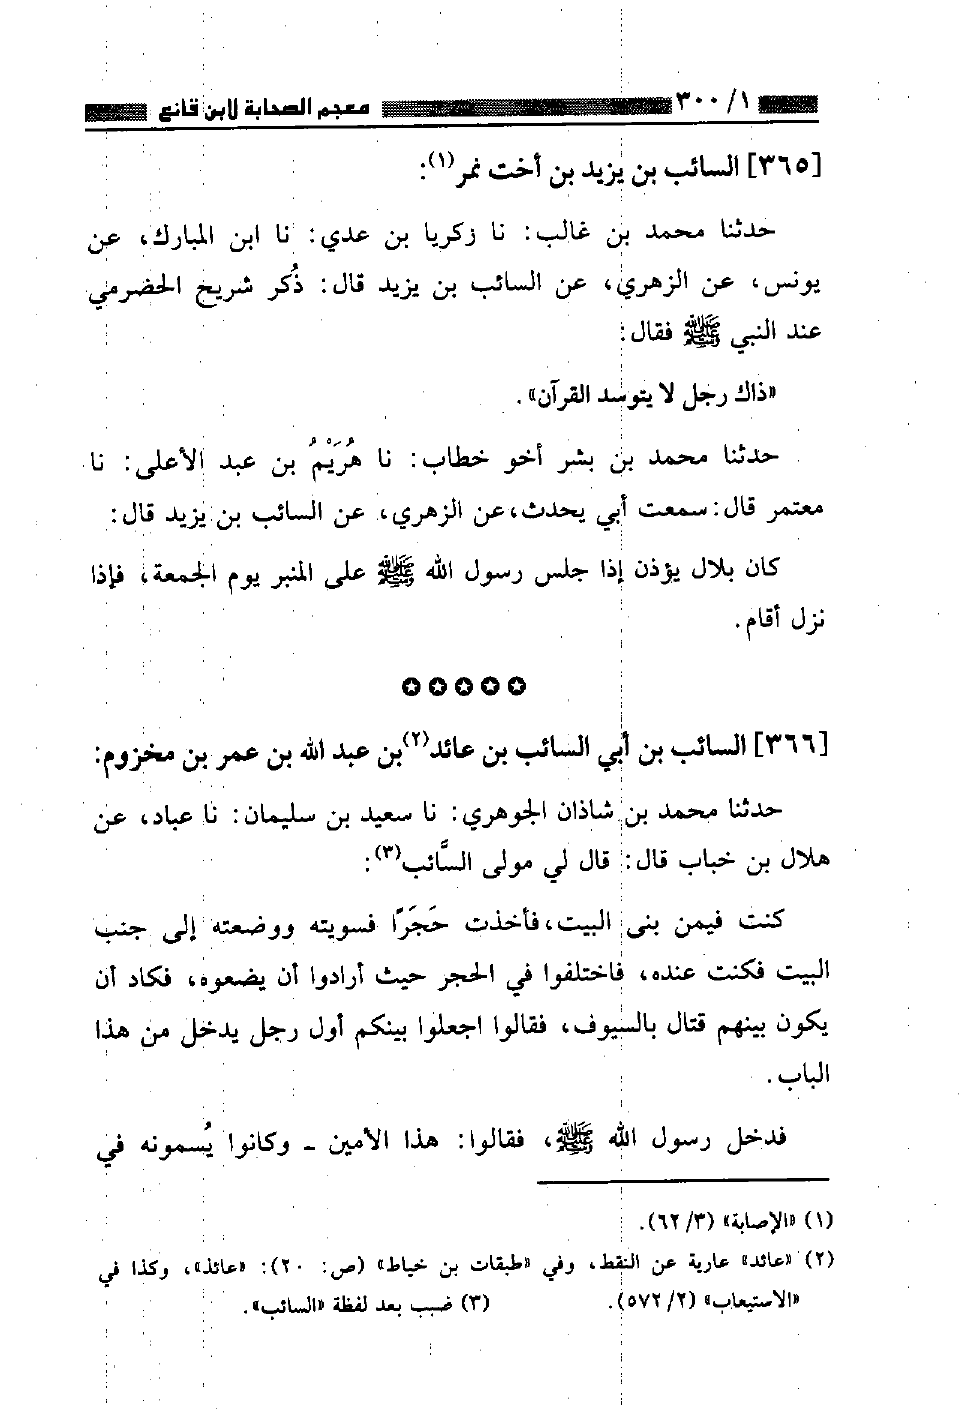 ١/ ٣٠٠ معجم الصحابة لابن قانع
[٣٦٥] السائب بن يزيد بن أخت نمر(١):
حدثنا محمد بن غالب: نا زكريا بن عدي: نا ابن المبارك، عن
يونس، عن الزهري، عن السائب بن يزيد قال: ذُكر شريح الحضرمي
عند النبي ﷺ فقال:
«ذاك رجل لا يتوسد القرآن».
حدثنا محمد بن بشر أخو خطاب: نا هُرَيْمُ بن عبد الأعلى: نا
معتمر قال: سمعت أبي يحدث، عن الزهري، عن السائب بن يزيد قال:
كان بلال يؤذن إذا جلس رسول الله ﷺ على المنبر يوم الجمعة، فإذا
نزل أقام.
✪✪✪✪✪
[٣٦٦] السائب بن أبي السائب بن عائد(٢)بن عبد الله بن عمر بن مخزوم:
حدثنا محمد بن شاذان الجوهري: نا سعيد بن سليمان: نا عباد، عن
هلال بن خباب قال: قال لي مولى السَّائب(٣):
كنت فيمن بنى البيت، فأخذت حَجَرًا فسويته ووضعته إلى جنب
البيت فكنت عنده، فاختلفوا في الحجر حيث أرادوا أن يضعوه، فكاد أن
يكون بينهم قتال بالسيوف، فقالوا اجعلوا بينكم أول رجل يدخل من هذا
الباب.
فدخل رسول الله ﷺ، فقالوا: هذا الأمين ـ وكانوا يُسمونه في
(١) «الإصابة» (٣/ ٦٢).
(٢) «عائد» عارية عن النقط، وفي «طبقات بن خياط» (ص: ٢٠): «عائذ»، وكذا في
«الاستيعاب» (٢/ ٥٧٢). (٣) ضبب بعد لفظة «السائب».